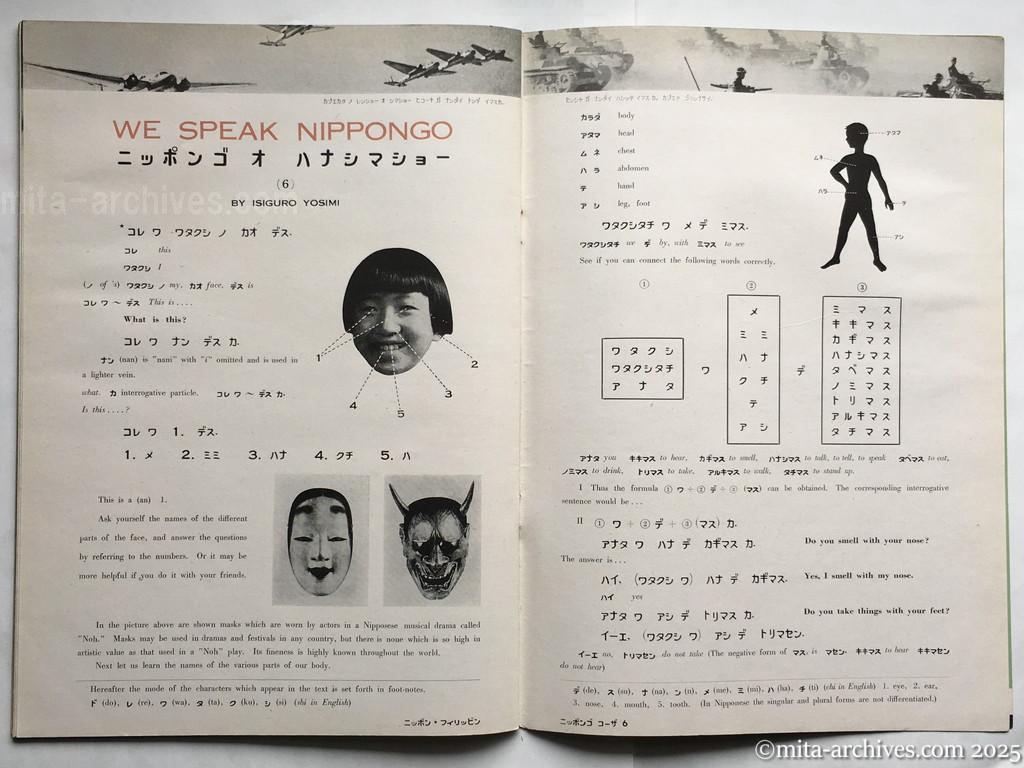 カゾエカタ ノ レンシュー オ シマショー ヒコーキ ガ ナンダイ トンデ イマスカ.
WE SPEAK NIPPONGO
ニッポンゴ オ ハナシマショー
(6)
BY ISIGURO YOSIMI
mita-archives.com
*コレ ワ ワタクシ ノ カオ デス.
コレ this
ワタクシ I
(ノ of 's) ワタクシ ノ my, カオ face, デス is
コレ ワ ~ デス This is....
What is this?
コレ ワ ナン デス カ.
ナン (nan) is "nani" with "i" omitted and is used in
a lighter vein.
what. カ interrogative particle. コレ ワ ~ デス カ.
Is this....?
コレ ワ 1. デス.
1. メ 2. ミミ 3. ハナ 4. クチ 5. ハ
1
2
3
4
5
This is a (an) 1.
Ask yourself the names of the different
parts of the face, and answer the questions
by referring to the numbers. Or it may be
more helpful if you do it with your friends.
In the picture above are shown masks which are worn by actors in a Nipponese musical drama called
"Noh." Masks may be used in dramas and festivals in any country, but there is none which is so high in
artistic value as that used in a "Noh" play. Its fineness is highly known throughout the world.
Next let us learn the names of the various parts of our body.
Hereafter the mode of the characters which appear in the text is set forth in foot-notes.
ド (do), レ (re), ワ (wa), タ (ta), ク (ku), シ (si) (shi in English)
ニッポン・フィリッピン
センシャ ガ ナンダイ ハシッテ イマスカ.
カラダ body
アタマ head
ム ネ chest
ハ ラ abdomen
テ hand
ア シ leg, foot
アタマ
ムネ
ハラ
テ
アシ
ワタクシタチ ワ メ デ ミマス.
ワタクシタチ we デ by, with ミマス to see
See if you can connect the following words correctly.
① ② ③
ワ タ ク シ
ワタクシタチ
ア ナ タ
ワ
メ
ミ ミ
ハ ナ
ク チ
テ
ア シ
デ
ミ マ ス
キ キ マ ス
カ ギ マ ス
ハナシマス
タ ベ マ ス
ノ ミ マ ス
ト リ マ ス
アルキマス
タ チ マ ス
アナタ you キキマス to hear, カギマス to smell, ハナシマス to talk, to tell, to speak タベマス to eat,
ノミマス to drink, トリマス to take, アルキマス to walk, タチマス to stand up.
I Thus the formula ① ワ + ② デ + ③ (マス) can be obtained. The corresponding interrogative
sentence would be...
II ① ワ + ② デ + ③ (マス) カ.
アナタ ワ ハナ デ カギマス カ. Do you smell with your nose?
The answer is...
ハイ、(ワタクシ ワ) ハナ デ カギマス. Yes, I smell with my nose.
ハイ yes
アナタ ワ アシ デ トリマス カ. Do you take things with your feet?
イーエ. (ワタクシ ワ) アシ デ トリマセン.
イーエ no, トリマセン do not take (The negative form of マス is マセン. キキマス to hear キキマセン
do not hear)
デ (de), ス (su), ナ (na), ン (n), メ (me), ミ (mi), ハ (ha), チ (ti) (chi in English) 1. eye, 2. ear,
3. nose, 4. mouth, 5. tooth. (In Nipponese the singular and plural forms are not differentiated.)
ニッポンゴ コーザ 6
©mita-archives.com 2025